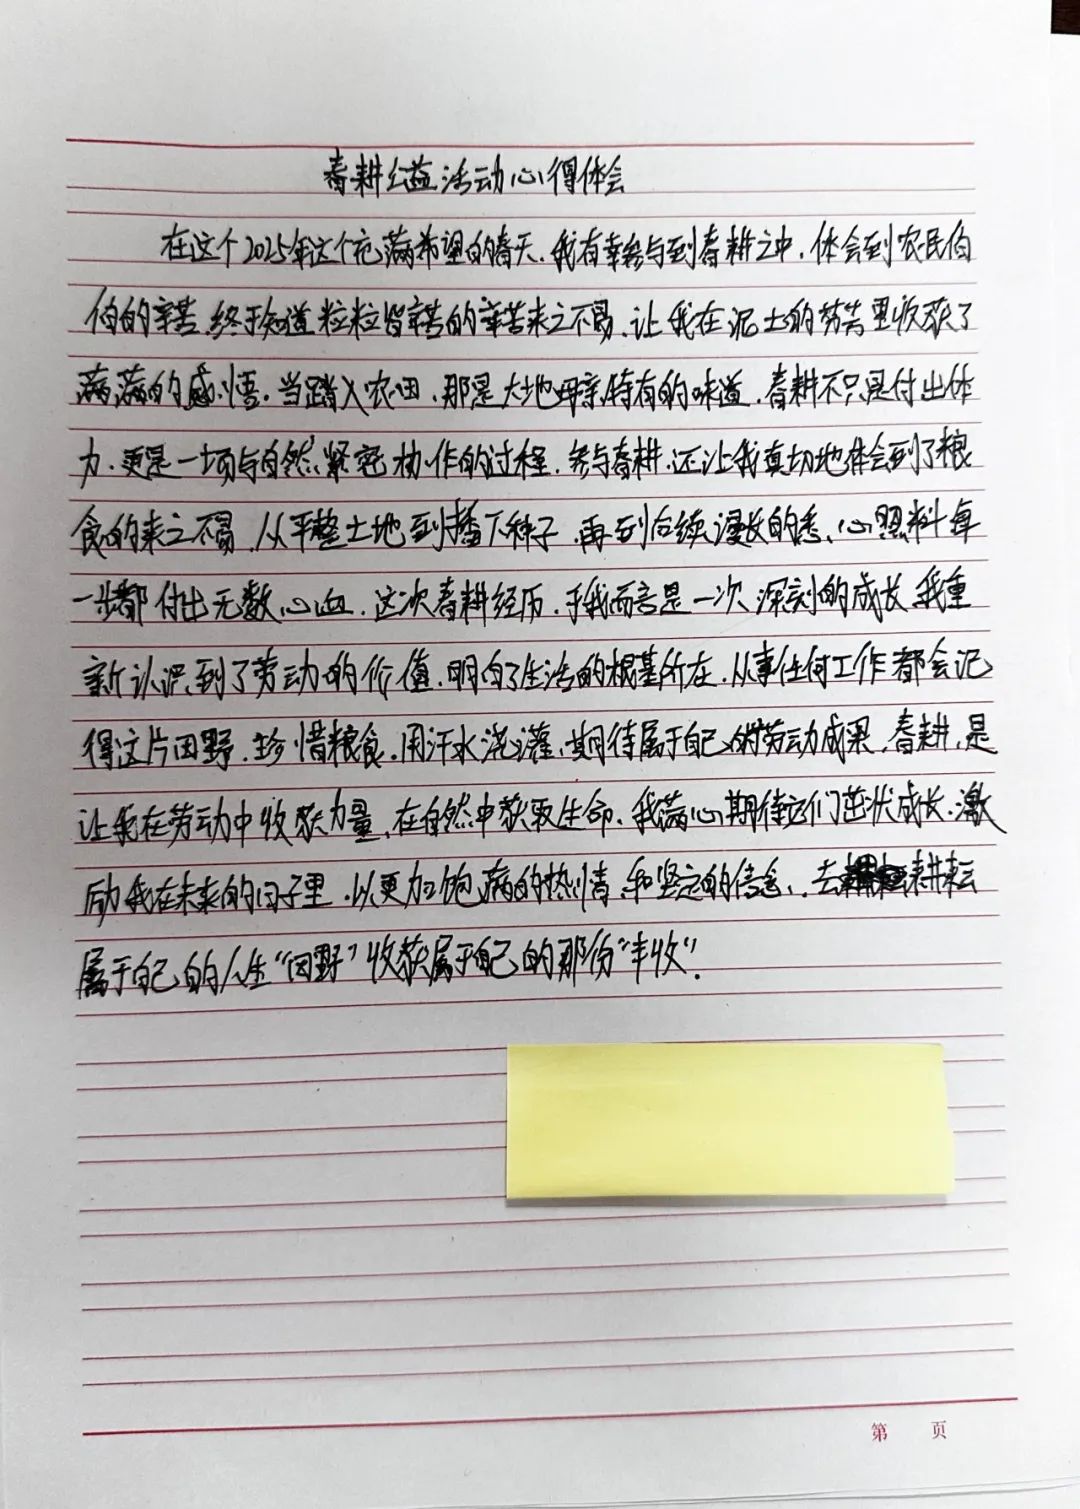 春耕公益活动心得体会
在这个2025年这个充满希望的春天.我有幸参与到春耕之中.体会到农民伯
伯的辛苦.终于知道粒粒皆辛苦的辛苦来之不易.让我在泥土的芬芳里收获了
满满的感悟.当踏入农田.那是大地母亲特有的味道.春耕不只是付出体
力.更是一项与自然紧密协作的过程.参与春耕.还让我真切地体会到了粮
食的来之不易.从平整土地到播下种子.再到后续漫长的悉心照料每
一步都付出无数心血.这次春耕经历.于我而言是一次深刻的成长我重
新认识到了劳动的价值.明白了生活的根基所在.从事任何工作都会记
得这片田野.珍惜粮食.用汗水浇灌.期待属于自己的劳动成果.春耕.是
让我在劳动中收获力量.在自然中获取生命.我满心期待它们茁状成长.激
励我在未来的日子里.以更加饱满的热情和坚定的信念.去耕耘
属于自己的人生“田野”收获属于自己的那份“丰收”.
第 页